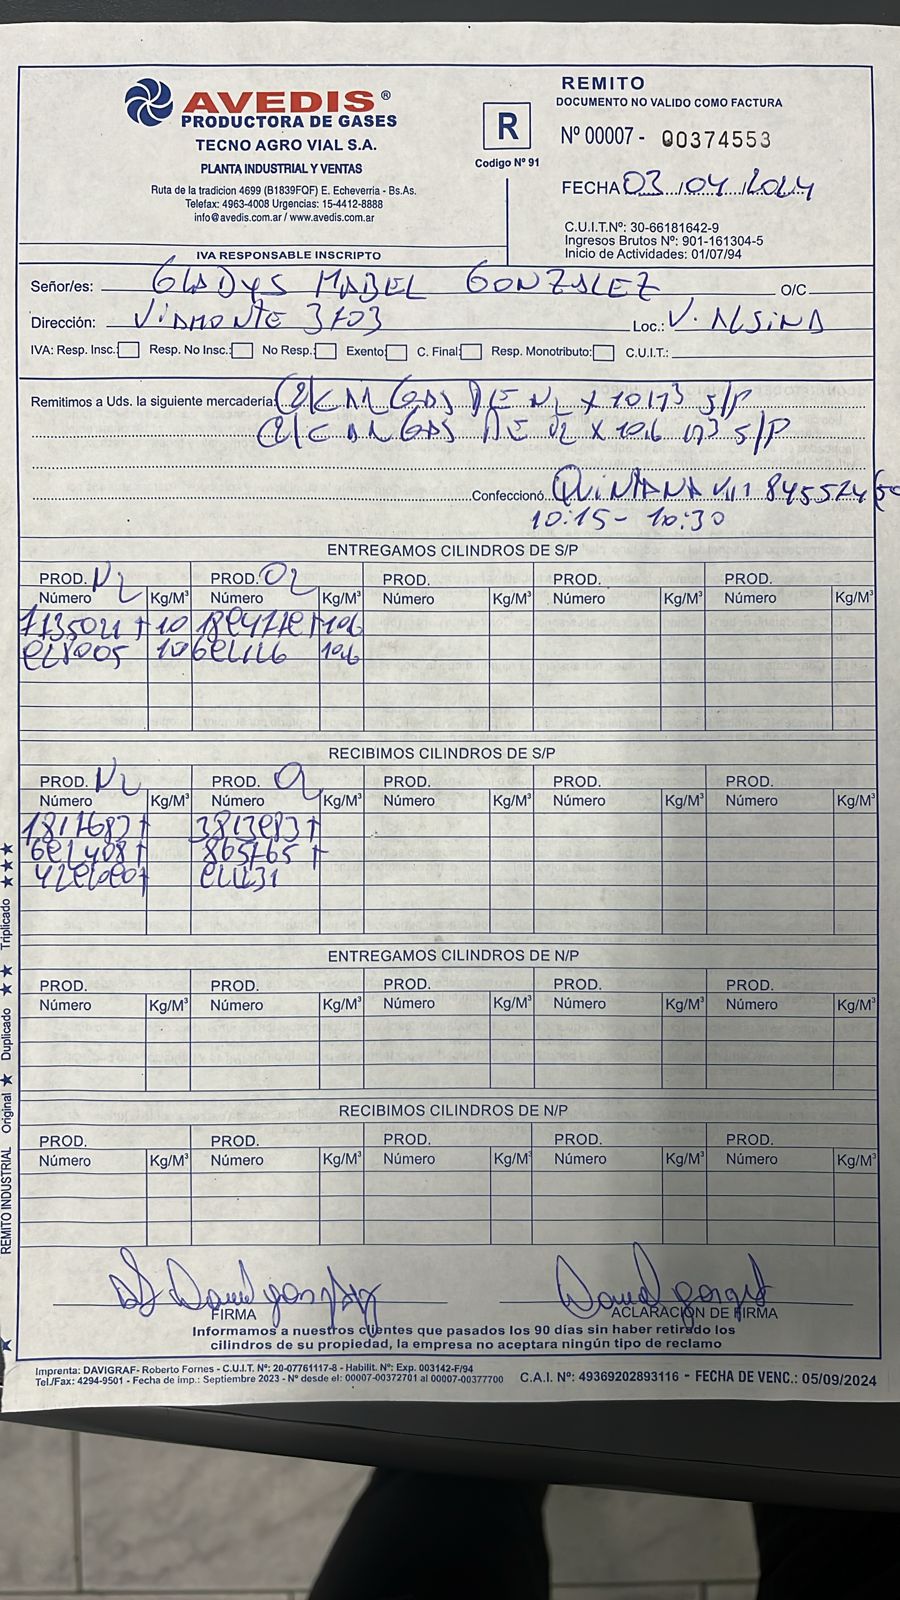 AVEDIS®
PRODUCTORA DE GASES
TECNO AGRO VIAL S.A.
PLANTA INDUSTRIAL Y VENTAS
Ruta de la tradicion 4699 (B1839FQF) E. Echeverria - Bs.As.
Telefax: 4963-4008 Urgencias: 15-4412-8888
info@avedis.com.ar / www.avedis.com.ar
IVA RESPONSABLE INSCRIPTO
R
Codigo Nº 91
REMITO
DOCUMENTO NO VALIDO COMO FACTURA
Nº 00007 - 00374553
FECHA 03/04/2024
C.U.I.T.Nº: 30-66181642-9
Ingresos Brutos Nº: 901-161304-5
Inicio de Actividades: 01/07/94
Señor/es: GLADYS MABEL GONZALEZ O/C
Dirección: VIAMONTE 3703 Loc.: V. ALSINA
IVA: Resp. Insc. Resp. No Insc. No Resp. Exento C. Final Resp. Monotributo: C.U.I.T.:
Remitimos a Uds. la siguiente mercaderia: GAS DE N2 X 10 M3 S/P
GAS DE O2 X 10.6 M3 S/P
Confeccionó QUINTANA
10:15 - 10:30
ENTREGAMOS CILINDROS DE S/P
PROD. N2 PROD. O2 PROD. PROD. PROD.
Número Kg/M³ Número Kg/M³ Número Kg/M³ Número Kg/M³ Número Kg/M³
10 10.6
10 10.6
RECIBIMOS CILINDROS DE S/P
PROD. N2 PROD. O2 PROD. PROD. PROD.
Número Kg/M³ Número Kg/M³ Número Kg/M³ Número Kg/M³ Número Kg/M³
865765
ENTREGAMOS CILINDROS DE N/P
PROD. PROD. PROD. PROD. PROD.
Número Kg/M³ Número Kg/M³ Número Kg/M³ Número Kg/M³ Número Kg/M³
RECIBIMOS CILINDROS DE N/P
PROD. PROD. PROD. PROD. PROD.
Número Kg/M³ Número Kg/M³ Número Kg/M³ Número Kg/M³ Número Kg/M³
FIRMA ACLARACIÓN DE FIRMA
Informamos a nuestros clientes que pasados los 90 días sin haber retirado los
cilindros de su propiedad, la empresa no aceptara ningún tipo de reclamo
Imprenta: DAVIGRAF- Roberto Fornes - C.U.I.T. Nº: 20-07761117-8 - Habilit. Nº: Exp. 003142-F/94
Tel./Fax: 4294-9501 - Fecha de imp.: Septiembre 2023 - Nº desde el: 00007-00372701 al 00007-00377700 C.A.I. Nº: 49369202893116 - FECHA DE VENC.: 05/09/2024
REMITO INDUSTRIAL Original ★ Duplicado ★★ Triplicado ★★★